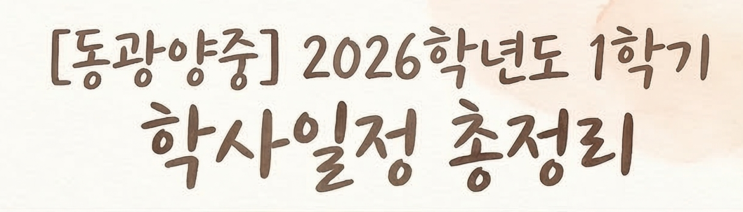 [동광양중] 2026학년도 1학기
학사일정 총정리